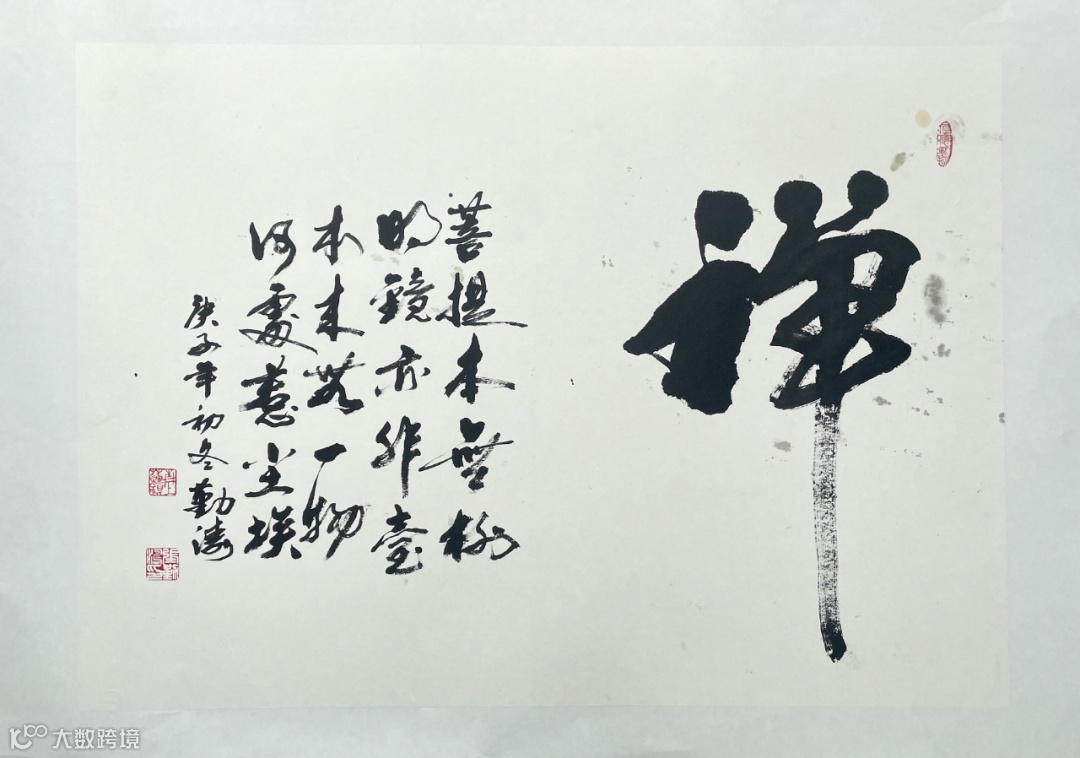 禅
菩提本無树
明鏡亦非臺
本来無一物
何處惹尘埃
庚子年初冬勤涛
大数跨境